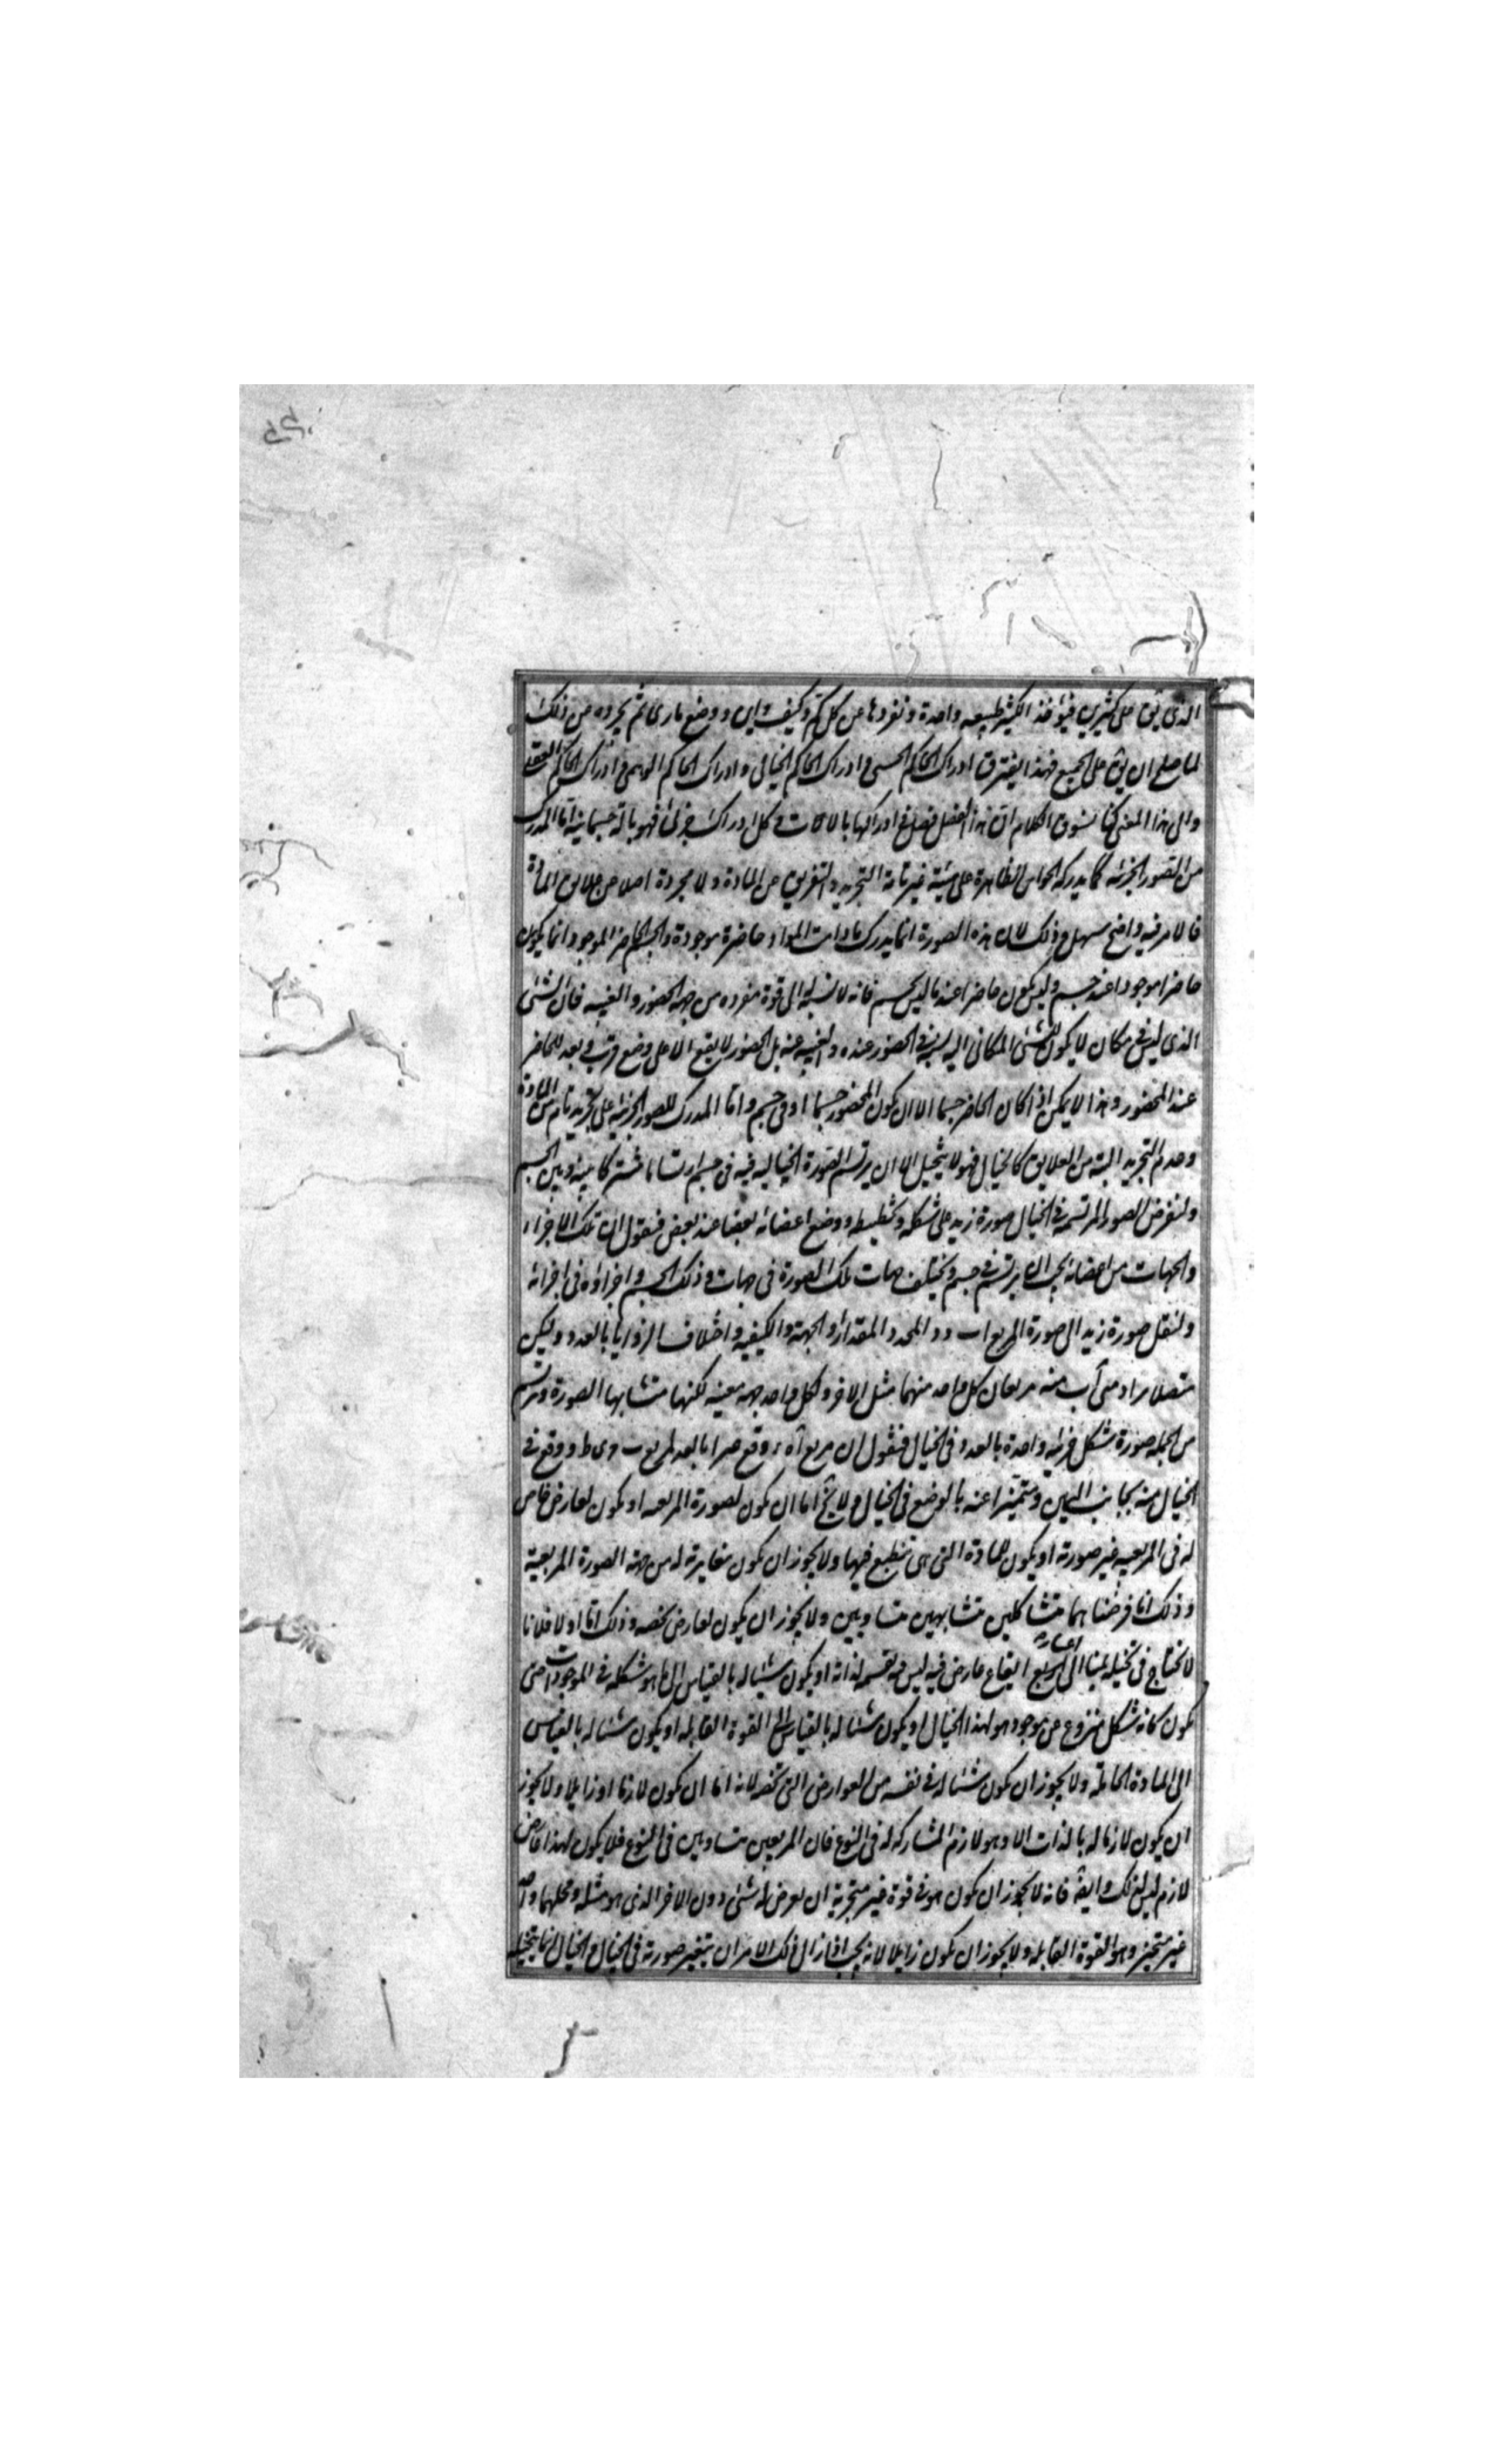 الذى يق على كثيرين فيؤخذ الكثير طبيعه واحدة و تفرد ها عن كل كم و كيف و اين و وضع مادى ثم يجرده عن ذلك
لما صلح ان يق على الجميع فهذا يفترق ادراك الحاكم الحسى و ادراك الحاكم الخيالى و ادراك الحاكم الوهمى و ادراك الحاكم العقلى
و الى هذا المعنى كنا نسوق الكلام فى هذا الفصل فصل فى ادراكها بالالات فى كل ادراك جزئى فهو بالة جسمانية اما المدرك
من الصور الجزئيه كما يدركه الحواس الظاهرة على هيئة غير تامة التجريد و التفريق عن المادة و لا مجردة اصلا عن علايق المادة
فالامر فيه واضح سهل و ذلك لان هذه الصورة انما يدرك مادامت المواد حاضرة موجودة و الجسم الحاضر الموجود انما يكون
حاضرا موجودا عند جسم و ليس يكون حاضرا عند ما ليس بجسم فانه لا نسبة له الى قوة مفرده من جهه الحضور و الغيبه فان الشئ
الذى ليس فى مكان لا يكون للشئ المكانى اليه نسبة فى الحضور عنده و الغيبه عنه بل الحضور لا يقع الا على وضع و قرب و بعد للحاضر
عند المحضور و هذا لا يمكن اذا كان الحاضر جسما الا ان يكون المحضور جسما او فى جسم و اما المدرك للصور الجزئيه على تجريد تام من المادة
و عدم التجريد البتة من العلايق كالخيال فهو لا يتخيل الا ان يرتسم الصورة الخياليه فيه فى جسم ارتساما مشتركا بينه و بين الجسم
و لنفرض الصورة المرتسمه فى الخيال صورة زيد على شكله و تخطيطه و وضع اعضائه بعضها عند بعض فنقول ان تلك الاجزاء
و الجهات من اعضائه يجب ان يرتسم فى جسم و يختلف جهات تلك الصورة فى جهات ذلك الجسم و اجزاؤه فى اجزائه
و لننقل صورة زيد الى صورة المربع اب ح د المحدود المقدار و الجهة و الكيفيه و اختلاف الزوايا بالعدد و ليكن
متصلا بزاويتى آب منه مربعان كل واحد منهما مثل الاخر و لكل واحد جهه معينه لكنهما متشابها الصورة و ترتسم
من الجمله صورة شكل جزئيه واحدة بالعدد فى الخيال فنقول ان مربع اه ر وقع غيرا بالعدد لمربع ب ح ى ط و وقع فى
الخيال منه بجانب اليمين و متميزا عنه بالوضع فى الخيال و لا يخ اما ان يكون لصورة المربعه او يكون لعارض خاص
له فى المربعيه غير صورته او يكون للمادة التى هى تنطبع فيها و لا يجوز ان يكون مغايرته له من جهة الصورة المربعية
و ذلك انا فرضناهما متشاكلين متشابهين متساويين و لا يجوز ان يكون لعارض يخصه و ذلك اما اولا فلانا
لا نحتاج فى تخيله يمينا الى اعتبار ايقاع عارض فيه ليس فيه لذاته او يكون شيئا له بالقياس الى ما هو شكله فى الموجودات حتى
يكون كانه شكل منزوع عن موجود هو لهذا الخيال او يكون شيئا له بالقياس الى القوة القابله او يكون شيئا له بالقياس
الى المادة الحاملة و لا يجوز ان يكون شيئا له فى نفسه من العوارض التى تخصه لانه اما ان يكون لازما او زايلا و لا يجوز
ان يكون لازما له بالذات الا و هو لازم لمشاركه له فى النوع فان المربعين متساويين فى النوع فلا يكون لهذا عارض
لازم ليس لذلك و ايضه فانه لا يجوز ان يكون هو فى قوة غير متجزية ان يعرض له شئ دون الاخر الذى هو مثله و محلهما واحد
غير متجز و هو القوة القابله و لا يجوز ان يكون زايلا لانه يجب اذا زال ذلك الامر ان يتغير صورته فى الخيال و الخيال انما يتخيله